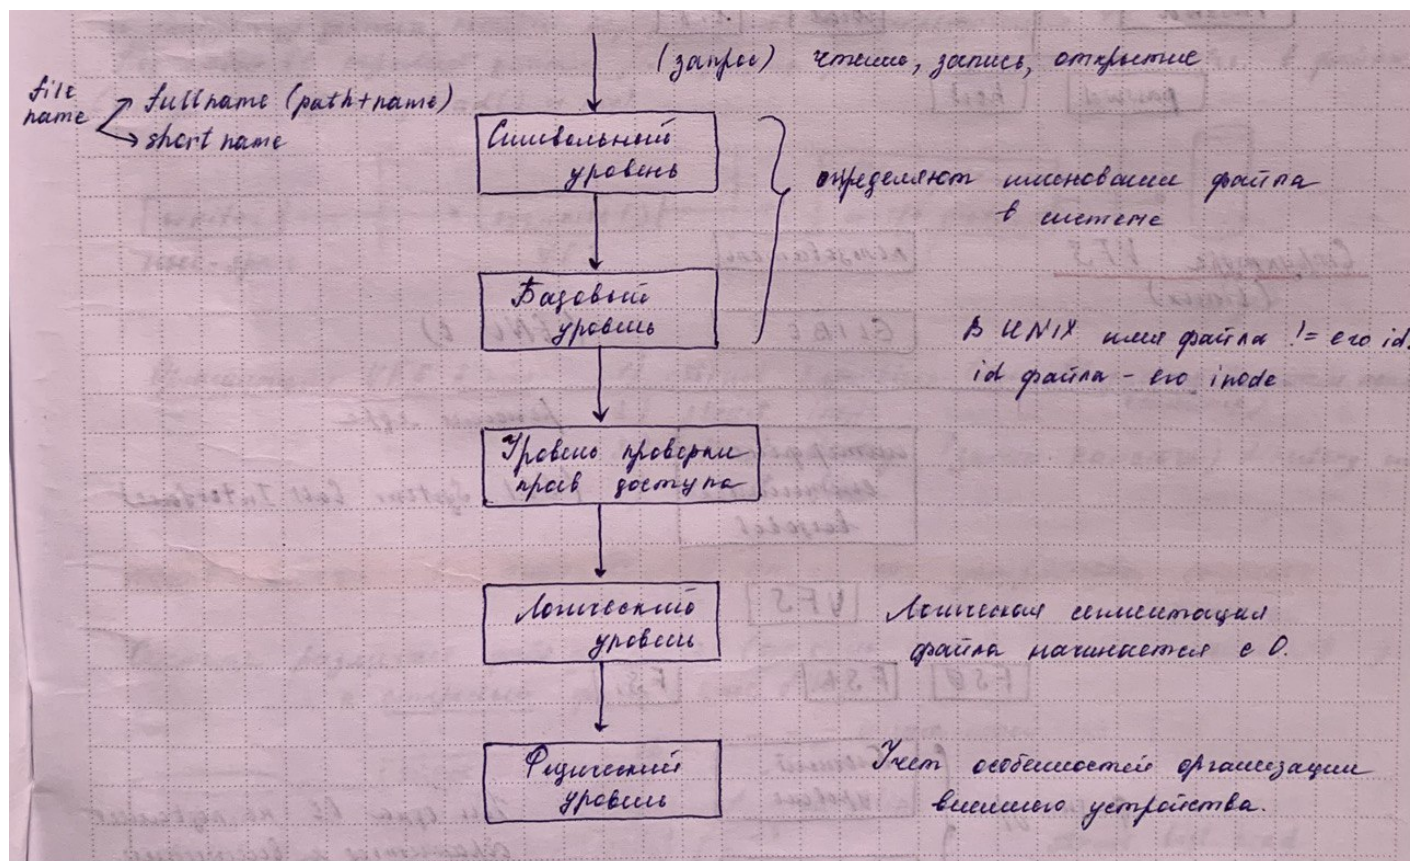 (запрос) чтение, запись, открытие
file
name
fullname (path+name)
short name
Символьный
уровень
определяют именование файла
в системе
Базовый
уровень
В UNIX имя файла != его id.
id файла - его inode
Уровень проверки
прав доступа
Логический
уровень
Логическая сегментация
файла начинается с 0.
Физический
уровень
Учет особенностей организации
внешнего устройства.